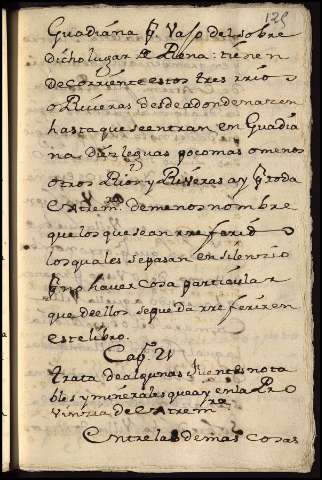 125
Guadiana pr. Vaso del sobre
dicho lugar de Rena: tienen
de corriente estos tres rrio
o Rivieras desde adonde nacen
hasta que se entran en Guadia
na Diez leguas poco mas o menos
otros Rios y Riveras ay pr. toda
extremra. de menos nombre
que los que sean rreferido
los quales se pasan en silencio
pr. no haver cosa particular
que de ellos se pueda rreferir en
este libro.
Capo. 21
trata de algunas fuentes nota
bles y minerales que ay en la Pro
Vinzia de Extremra.
Entre las demas cosas